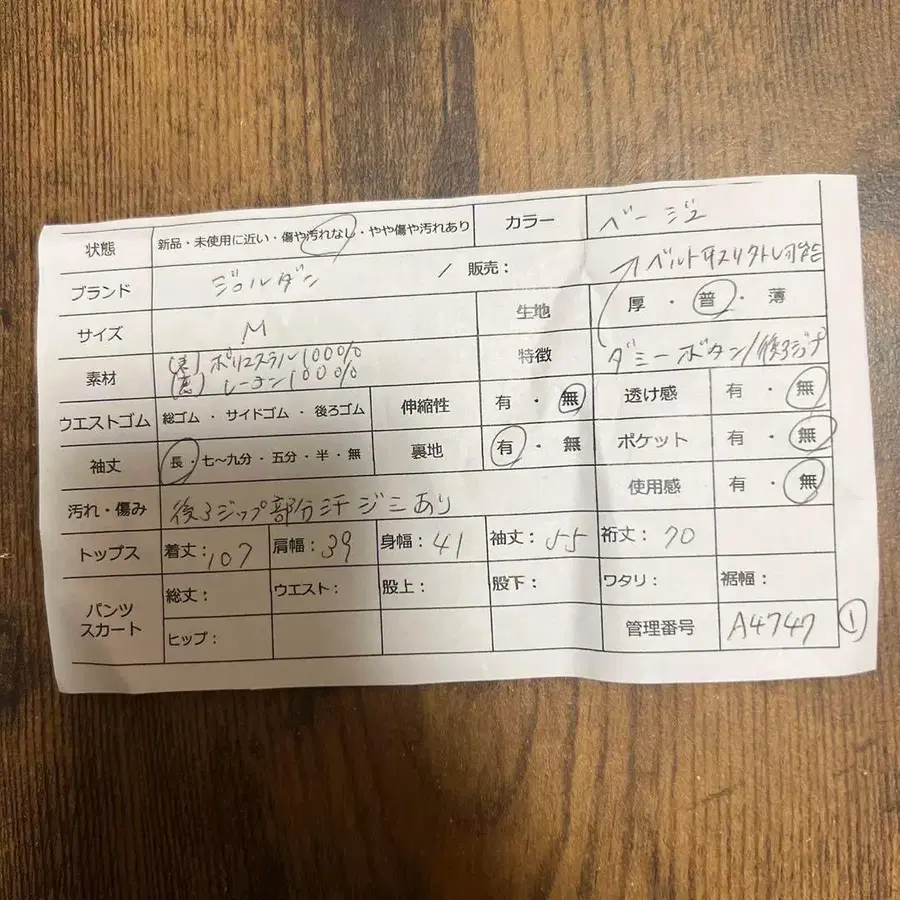 状態 新品・未使用に近い・傷や汚れなし・やや傷や汚れあり カラー ベージュ
ブランド ジョルダン / 販売: ↗ベルト 取り外し可能
サイズ M 生地 厚・普・薄
素材 (表)ポリエステル100% 特徴 ダミーボタン/後ろジップ
(裏)レーヨン100%
ウエストゴム 総ゴム・サイドゴム・後ろゴム 伸縮性 有・無 透け感 有・無
袖丈 長・七〜九分・五分・半・無 裏地 有・無 ポケット 有・無
汚れ・傷み 後ろジップ部分汗ジミあり 使用感 有・無
トップス 着丈:107 肩幅:39 身幅:41 袖丈:55 裄丈:70
パンツ スカート 総丈: ウエスト: 股上: 股下: ワタリ: 裾幅:
ヒップ: 管理番号 A4747 ①